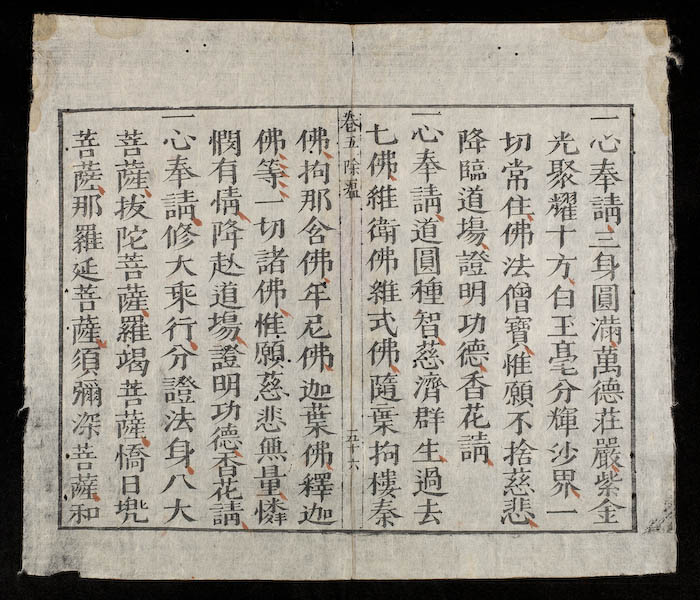 一心奉請三身圓滿萬德莊嚴紫金
光聚耀十方白玉毫分輝沙界一
切常住佛法僧寶惟願不捨慈悲
降臨道場證明功德香花請
一心奉請道圓種智慈濟群生過去
七佛維衛佛維式佛隨葉拘樓秦
卷五 除瘟
五十六
佛拘那含佛牟尼佛迦葉佛釋迦
佛等一切諸佛惟願慈悲無量憐
憫有情降赴道場證明功德香花請
一心奉請修大乘行分證法身八大
菩薩拔陀菩薩羅竭菩薩憍日兠
菩薩那羅延菩薩須彌深菩薩和